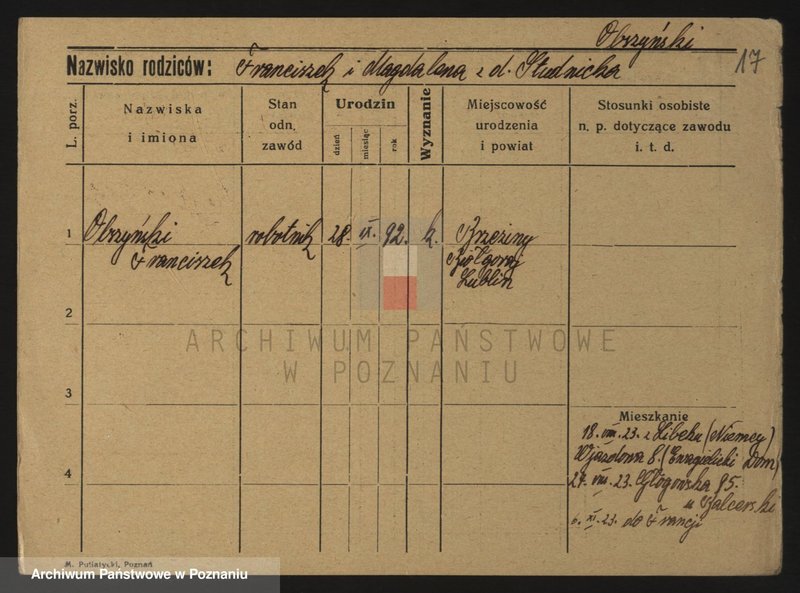 Obszyński
17
Nazwisko rodziców: Franciszek i Magdalena z d. Studnicka
L. porz.
Nazwiska i imiona
Stan odn. zawód
Urodzin
dzień
miesiąc
rok
Wyznanie
Miejscowość urodzenia i powiat
Stosunki osobiste n. p. dotyczące zawodu i. t. d.
1 Obszyński robotnik 28. IX. 92. k. Brzeziny
Franciszek Biłgoraj
Lublin
2
3
4
ARCHIWUM PAŃSTWOWE
W POZNANIU
Mieszkanie
18. VIII. 23. z Libeku (Niemcy)
Wjazdowa 8. (Ewagielicki Dom)
27. VIII. 23. Głogowska 85.
u Balcerski
6. XI. 23. do Francji
M. Putiatycki, Poznań
Archiwum Państwowe w Poznaniu